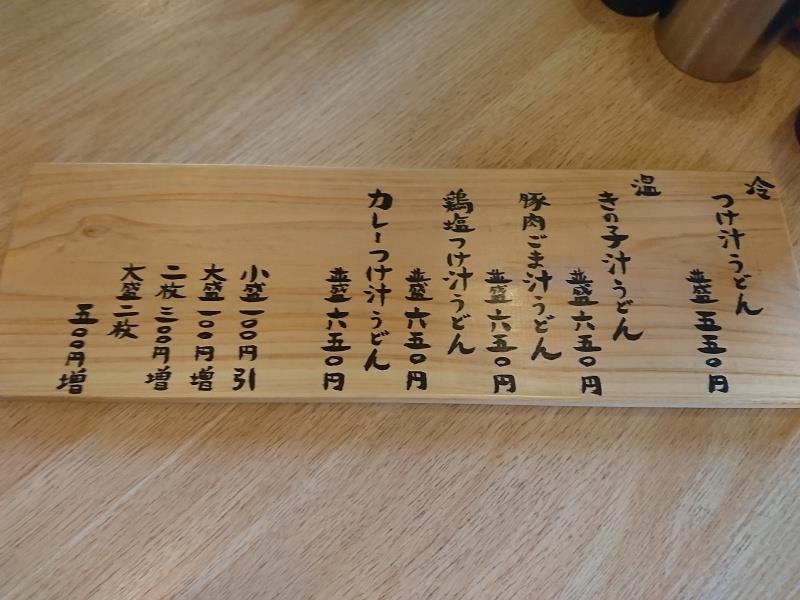 冷
つけ汁うどん
並盛 五五〇円
温
きの子汁うどん
並盛 六五〇円
豚肉ごま汁うどん
並盛 六五〇円
鶏塩つけ汁うどん
並盛 六五〇円
カレーつけ汁うどん
並盛 六五〇円
小盛一〇〇円引
大盛一〇〇円増
二枚三〇〇円増
大盛二枚
五〇〇円増